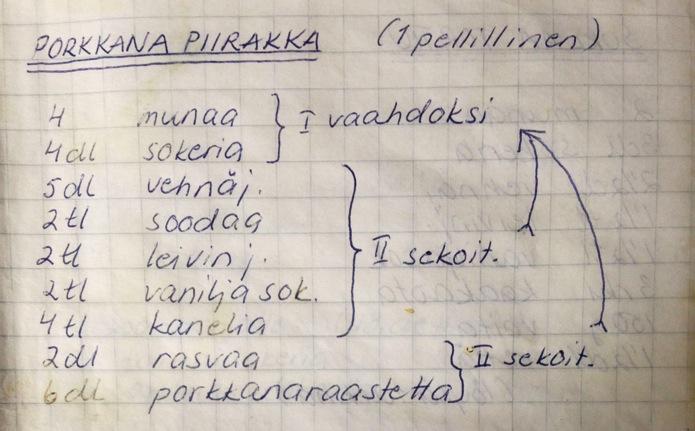 PORKKANA PIIRAKKA (1 pellillinen)
4 munaa I vaahdoksi
4dl sokeria
5dl vehnäj.
2tl soodaa
2tl leivinj. II sekoit.
2tl vanilja sok.
4tl kanelia
2dl rasvaa II sekoit.
6dl porkkanaraastetta